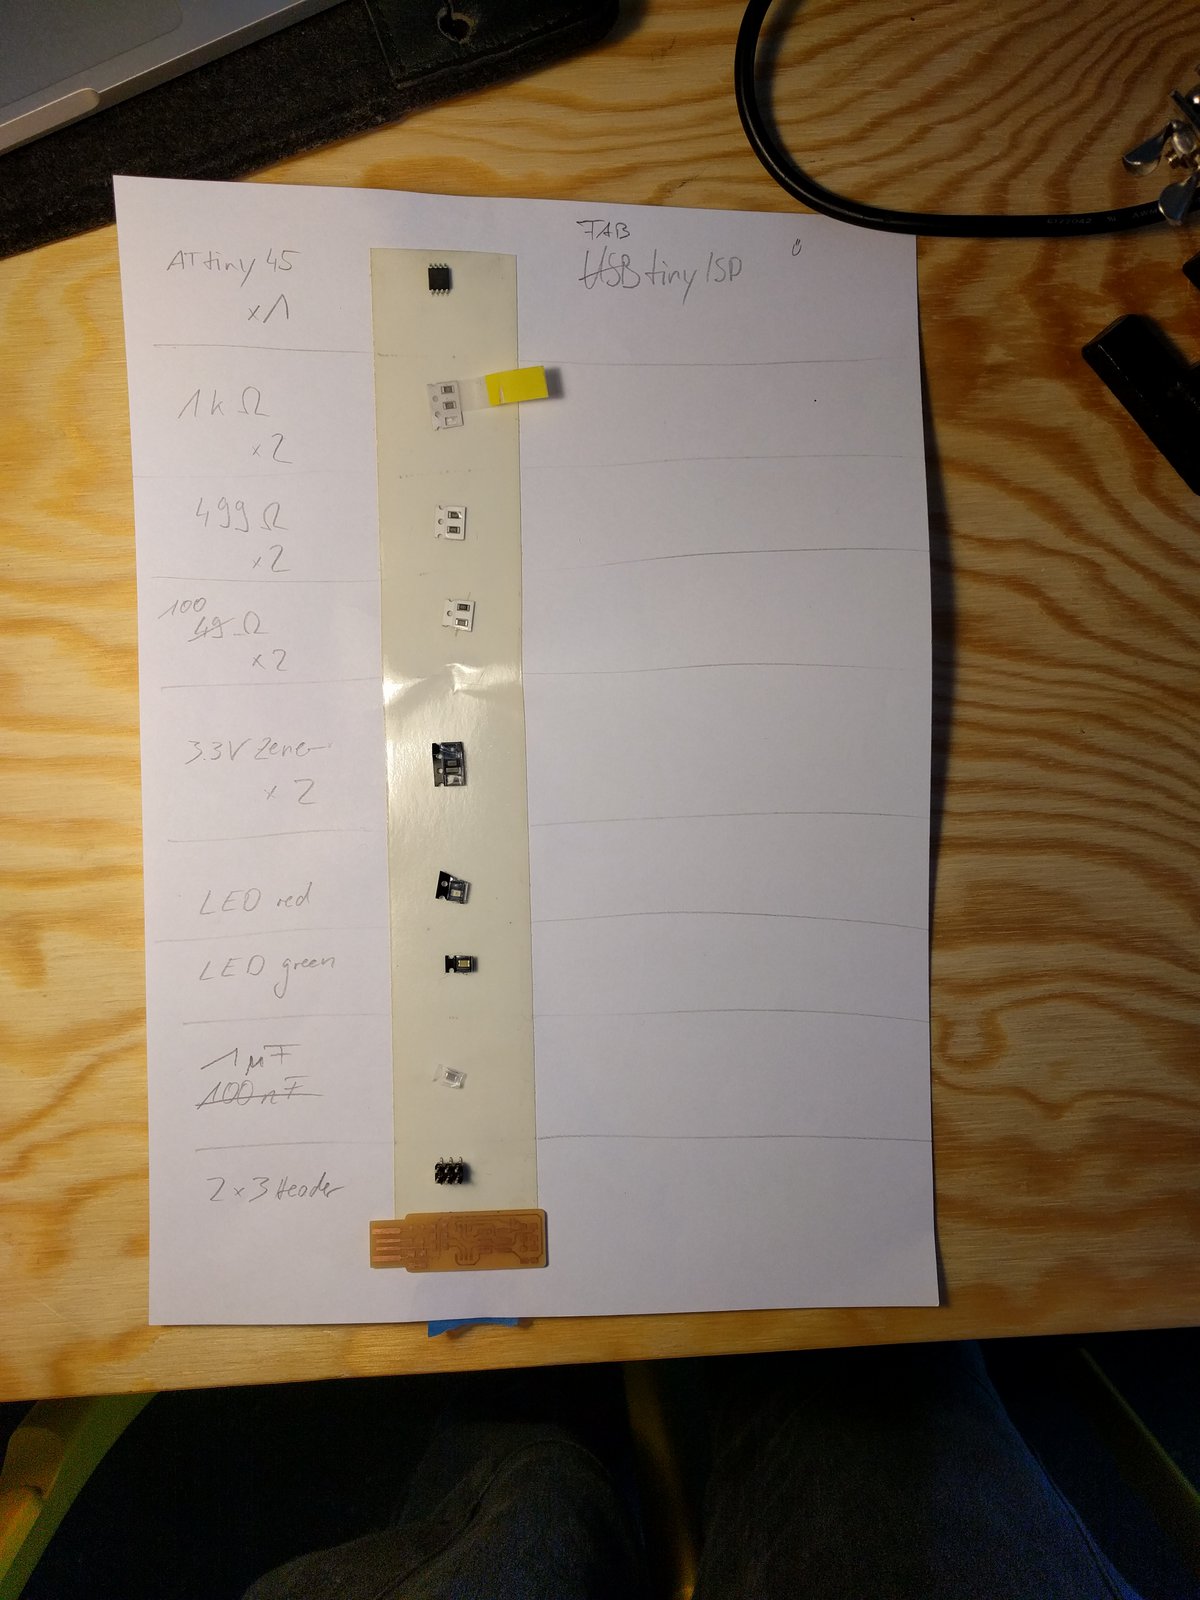 FAB
USBtinyISP
ATtiny45
x1
1kΩ
x2
499Ω
x2
100
49Ω
x2
3.3V Zener
x2
LED red
LED green
1µF
100nF
2x3 Header